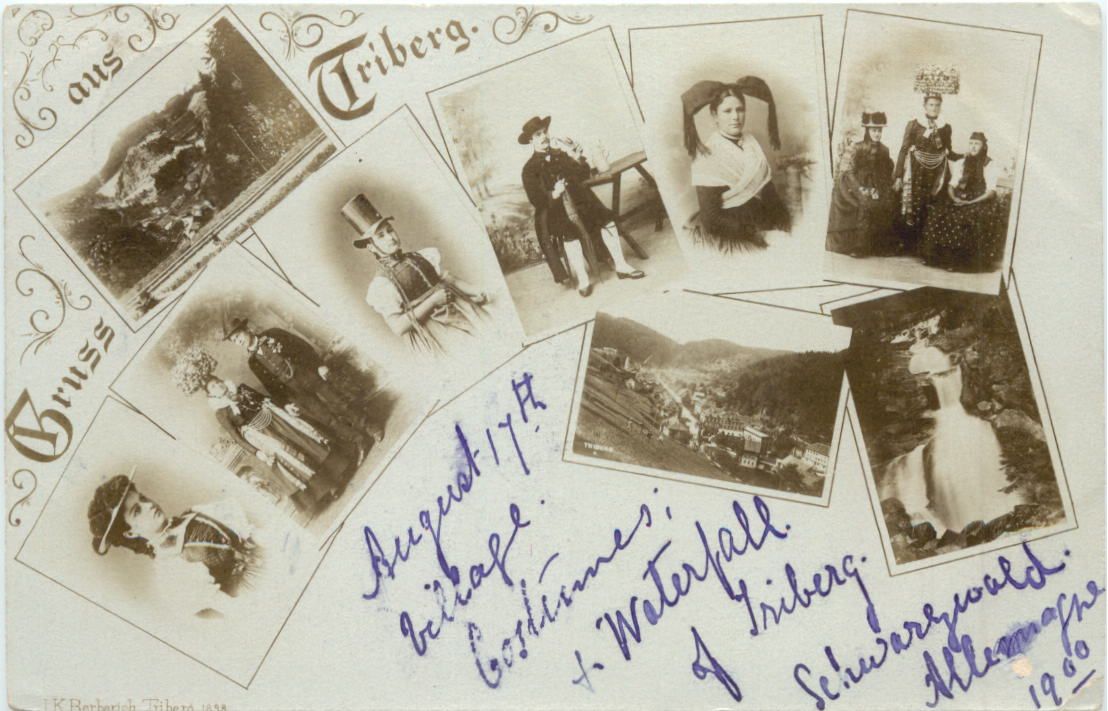 Gruss aus Triberg.
TRIBERG
August 17th
Village.
Costumes;
+ Waterfall.
of Triberg.
Schwarzwald.
Allemagne
1900
J.K. Berberich, Triberg 1898